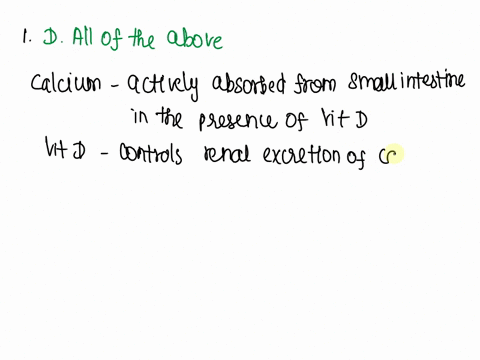 1. D. All of the above
Calcium - actively absorbed from small intestine
in the presence of Vit D
Vit D - controls renal excretion of ca